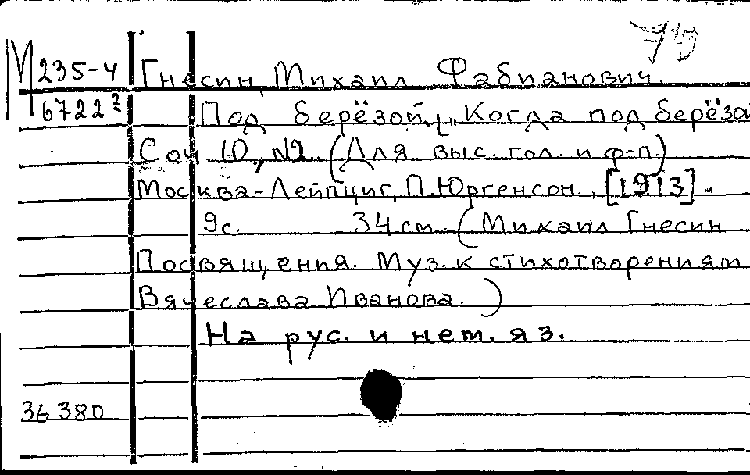 М 235-4 Гнесин, Михаил Фабианович.
6722² Под берёзой, "Когда под берёзо
Соч 10, №2. (Для выс. гол. и ф-п.)
Москва-Лейпциг, П. Юргенсон, [1913].
9с. 34 см. (Михаил Гнесин
Посвящения. Муз. к стихотворениям
Вячеслава Иванова.)
На рус. и нем. яз.
36380